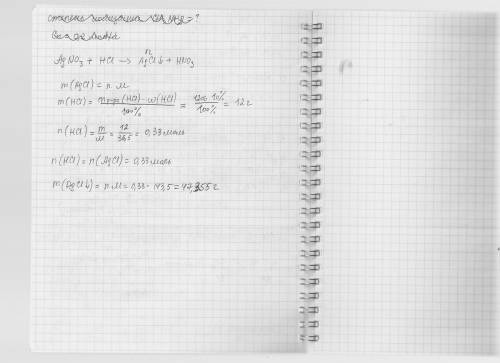 степень
AgNO₃ + HCl → AgCl↓ + HNO₃
m(AgCl) = n·M
m(HCl) = mр-ра(HCl)·ω(HCl) / 100% = 120·10% / 100% = 12 г
n(HCl) = m/M = 12/36,5 = 0,33 моль
n(HCl) = n(AgCl) = 0,33 моль
m(AgCl↓) = n·M = 0,33·143,5 = 47,355 г